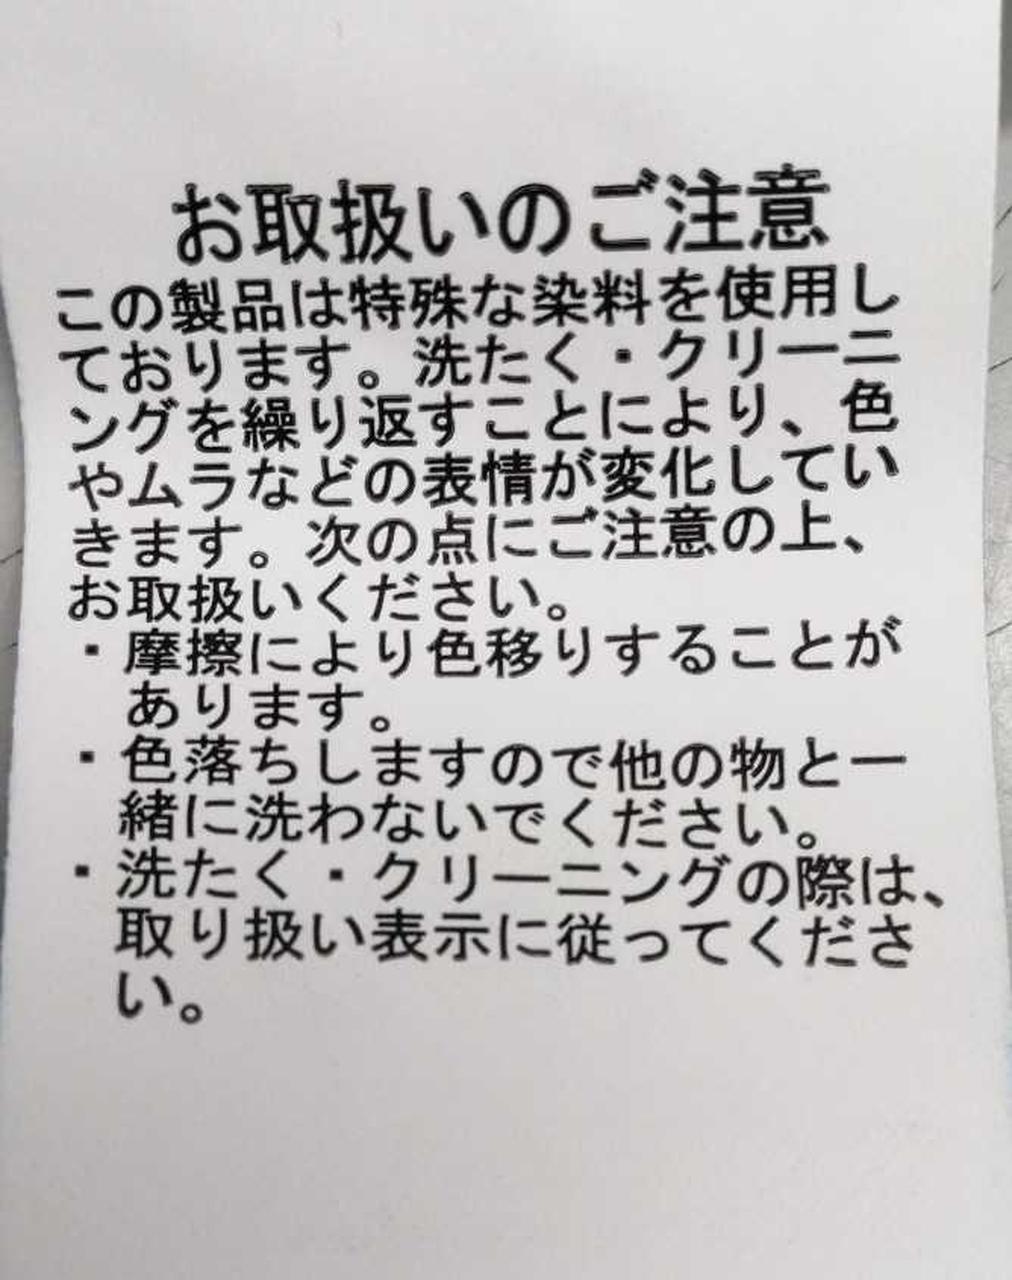 お取扱いのご注意
この製品は特殊な染料を使用し
ております。洗たく・クリーニ
ングを繰り返すことにより、色
やムラなどの表情が変化してい
きます。次の点にご注意の上、
お取扱いください。
・摩擦により色移りすることが
あります。
・色落ちしますので他の物と一
緒に洗わないでください。
・洗たく・クリーニングの際は、
取り扱い表示に従ってくださ
い。